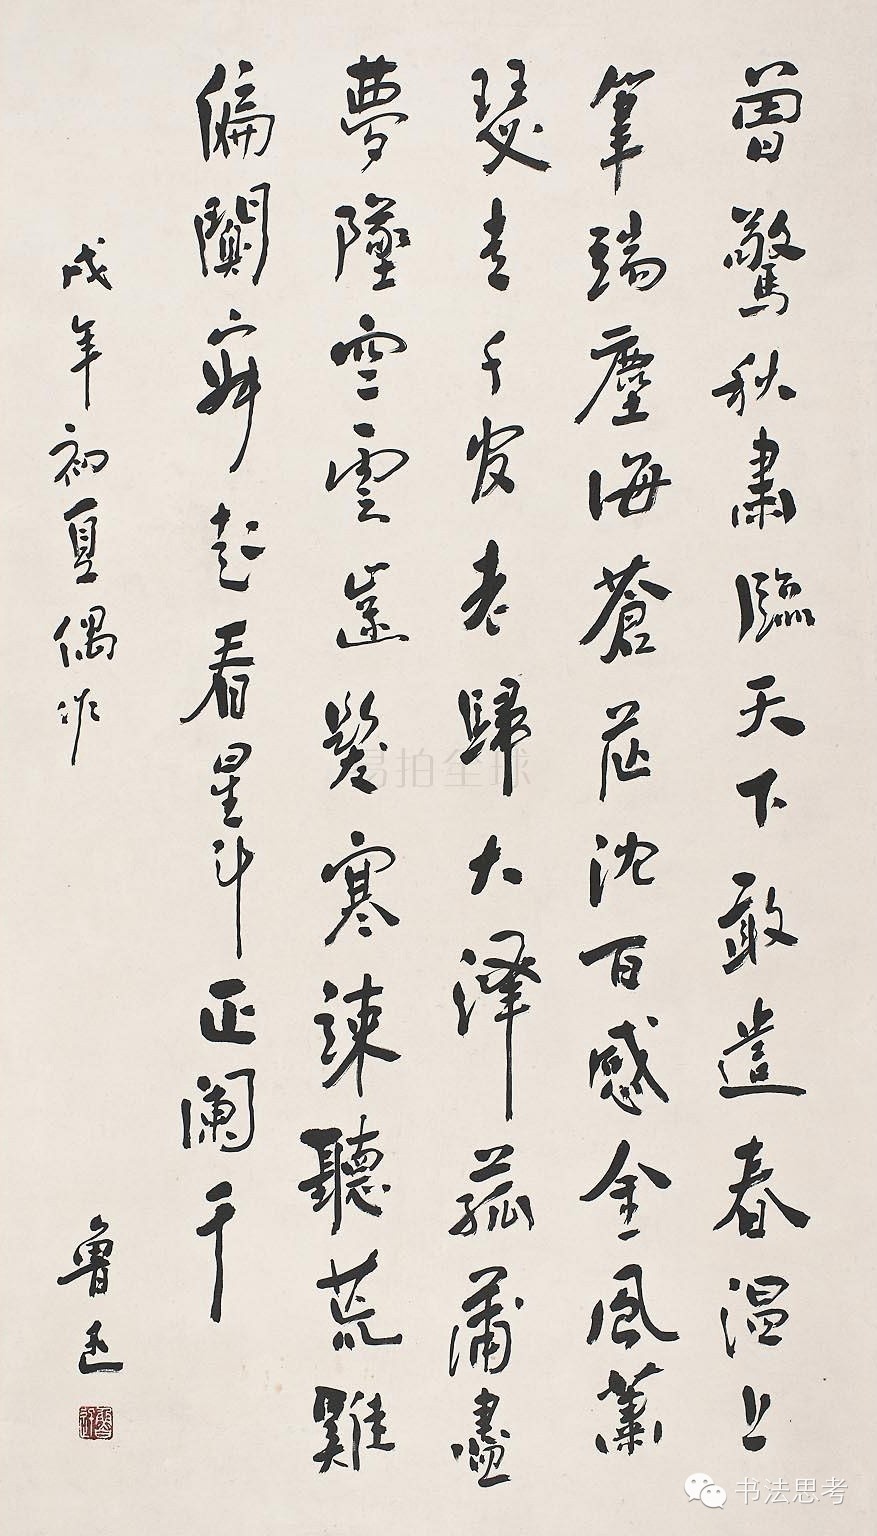 曾驚秋肅臨天下敢遣春溫上
筆端塵海蒼茫沈百感金風蕭
瑟走千官老歸大澤菰蒲盡
夢墜空雲齒髮寒竦聽荒雞
偏闃寂起看星斗正闌干
戌年初夏偶作
魯迅
易拍全球
书法思考